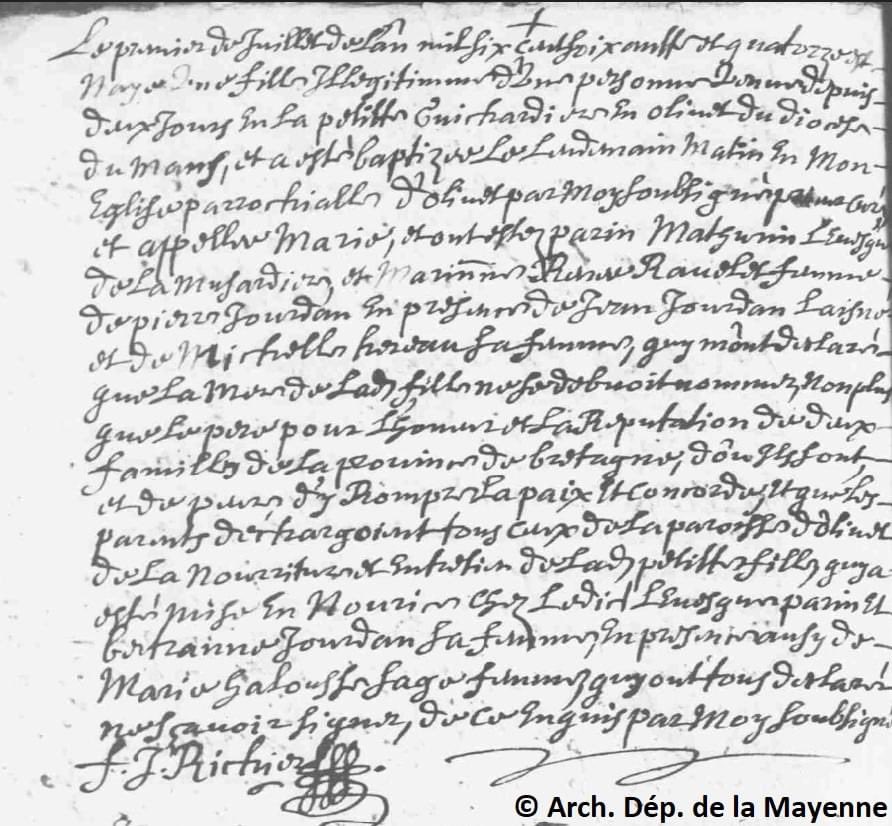 Le premier de Juillet de L'an mil six cent soixantte et quatorze est
Naye une fille Illegitimme d'une personne venue depuis
deux Jours En La petitte Guichardiere En olivet du diocese
du Mans, et a esté baptizee Le Lendemain Matin En Mon
Eglise parrochialle d'olivet par Moy soubsigné curé
et appellee Marie, et ont estez parin Mathurin Levesque
de La Musardiere, et Marinne Renee Ravelet femme
de pierre Jourdan En presence de Jean Jourdan Laisné
et de Michelle hereau sa femme, quy m'ont declaré
que La Mere de Lad fille ne se debvoit nommer, Non plus
que Le pere pour L'honneur et La Reputation de deux
familles de La province de bretagne, d'ou Ils sont,
et de peur d'y Rompre La paix Et Concorde, Et que Les
parents dechargoient tous ceux de La paroisse d'olivet
de La Nourriture et Entretien de Lad petitte fille, quy a
esté mise En Nourice Chez Ledict Levesque parin Et
bertranne Jourdan sa femme, En presence aussy de
Marie Galousse sage femme, quy ont tous declaré
ne sçavoir signer, de ce Enquis par Moy soubsigné
f. J. Richer
© Arch. Dép. de la Mayenne